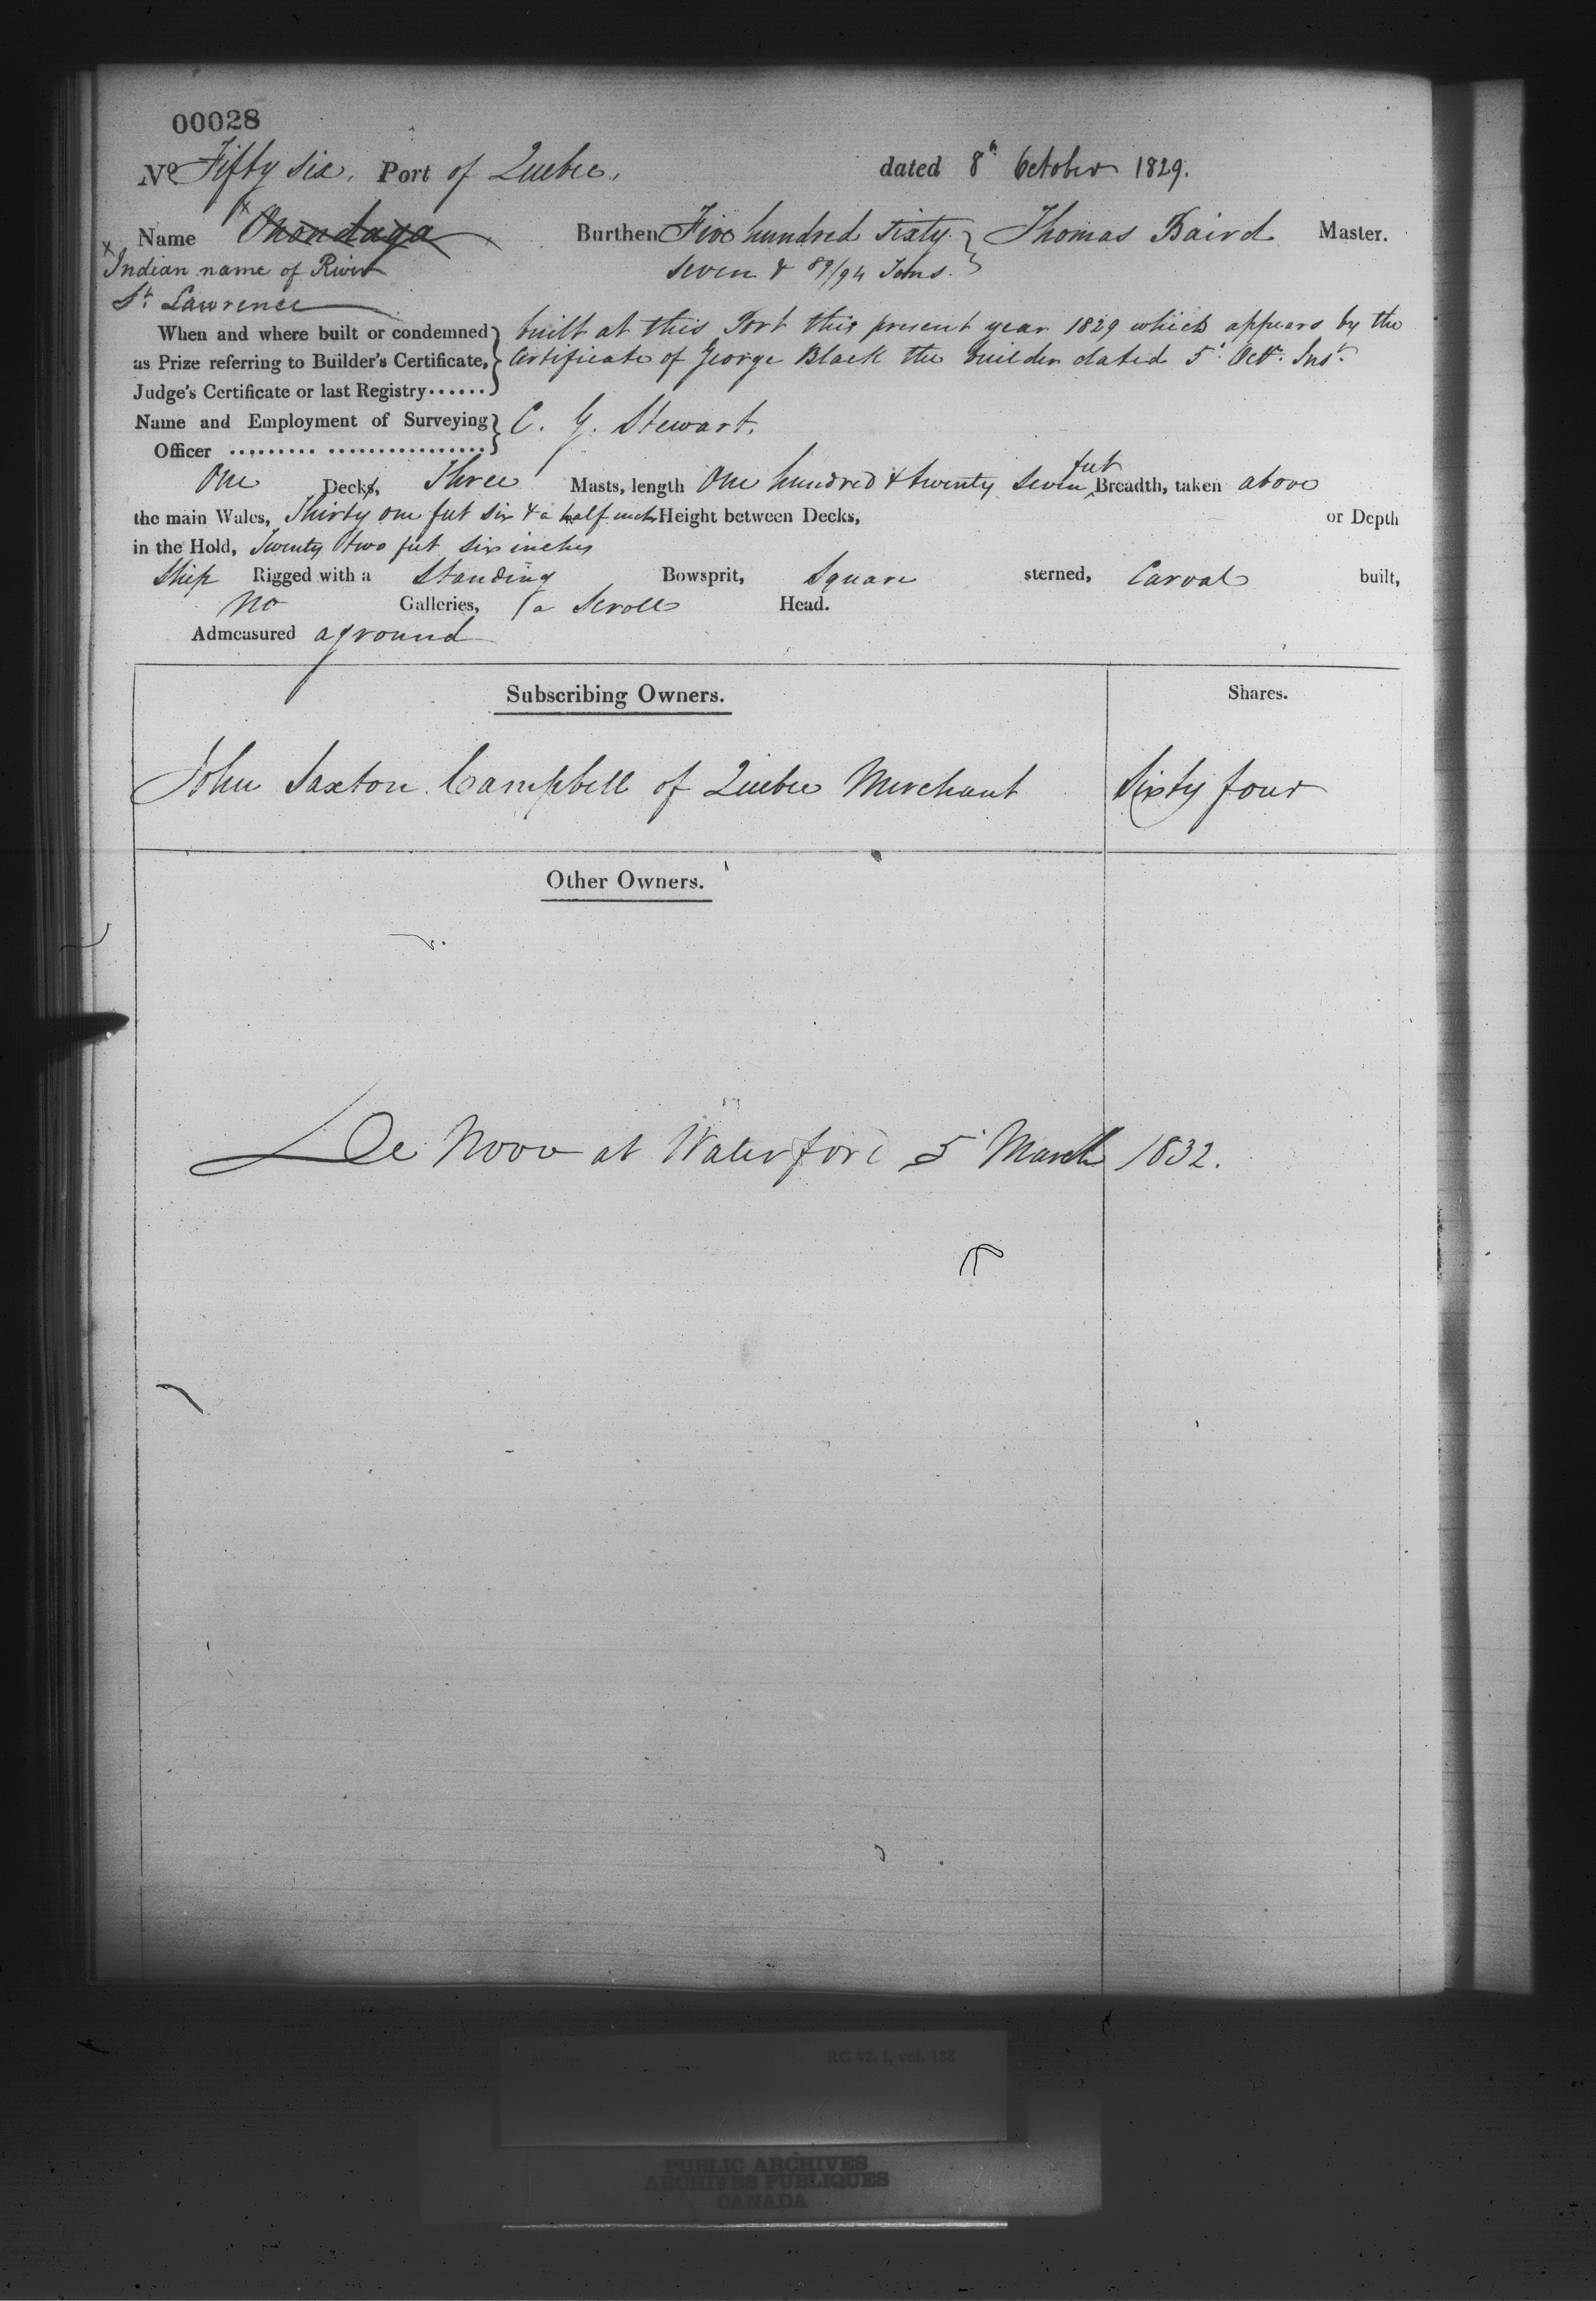 00028
No. Fifty six. Port of Quebec. dated 8th October 1829.
Name x Onondaga Burthen Five hundred sixty Thomas Baird Master.
seven & 89/94 Tons.
x Indian name of River
St. Lawrence
When and where built or condemned built at this Port this present year 1829 which appears by the
as Prize referring to Builder's Certificate, Certificate of George Black the builder dated 5th Octr. Inst.
Judge's Certificate or last Registry......
Name and Employment of Surveying C. G. Stewart.
Officer ......... ................
One Decks, Three Masts, length One hundred & twenty seven feet Breadth, taken above
the main Wales, Thirty one feet six & a half inches Height between Decks, or Depth
in the Hold, Twenty two feet six inches
Ship Rigged with a Standing Bowsprit, Square sterned, Carval built,
No Galleries, a Scroll Head.
Admeasured aground
Subscribing Owners. Shares.
John Saxton Campbell of Quebec Merchant Sixty four
Other Owners.
De Novo at Waterford 5th March 1832.
RG 42, I, vol. 188
PUBLIC ARCHIVES
ARCHIVES PUBLIQUES
CANADA